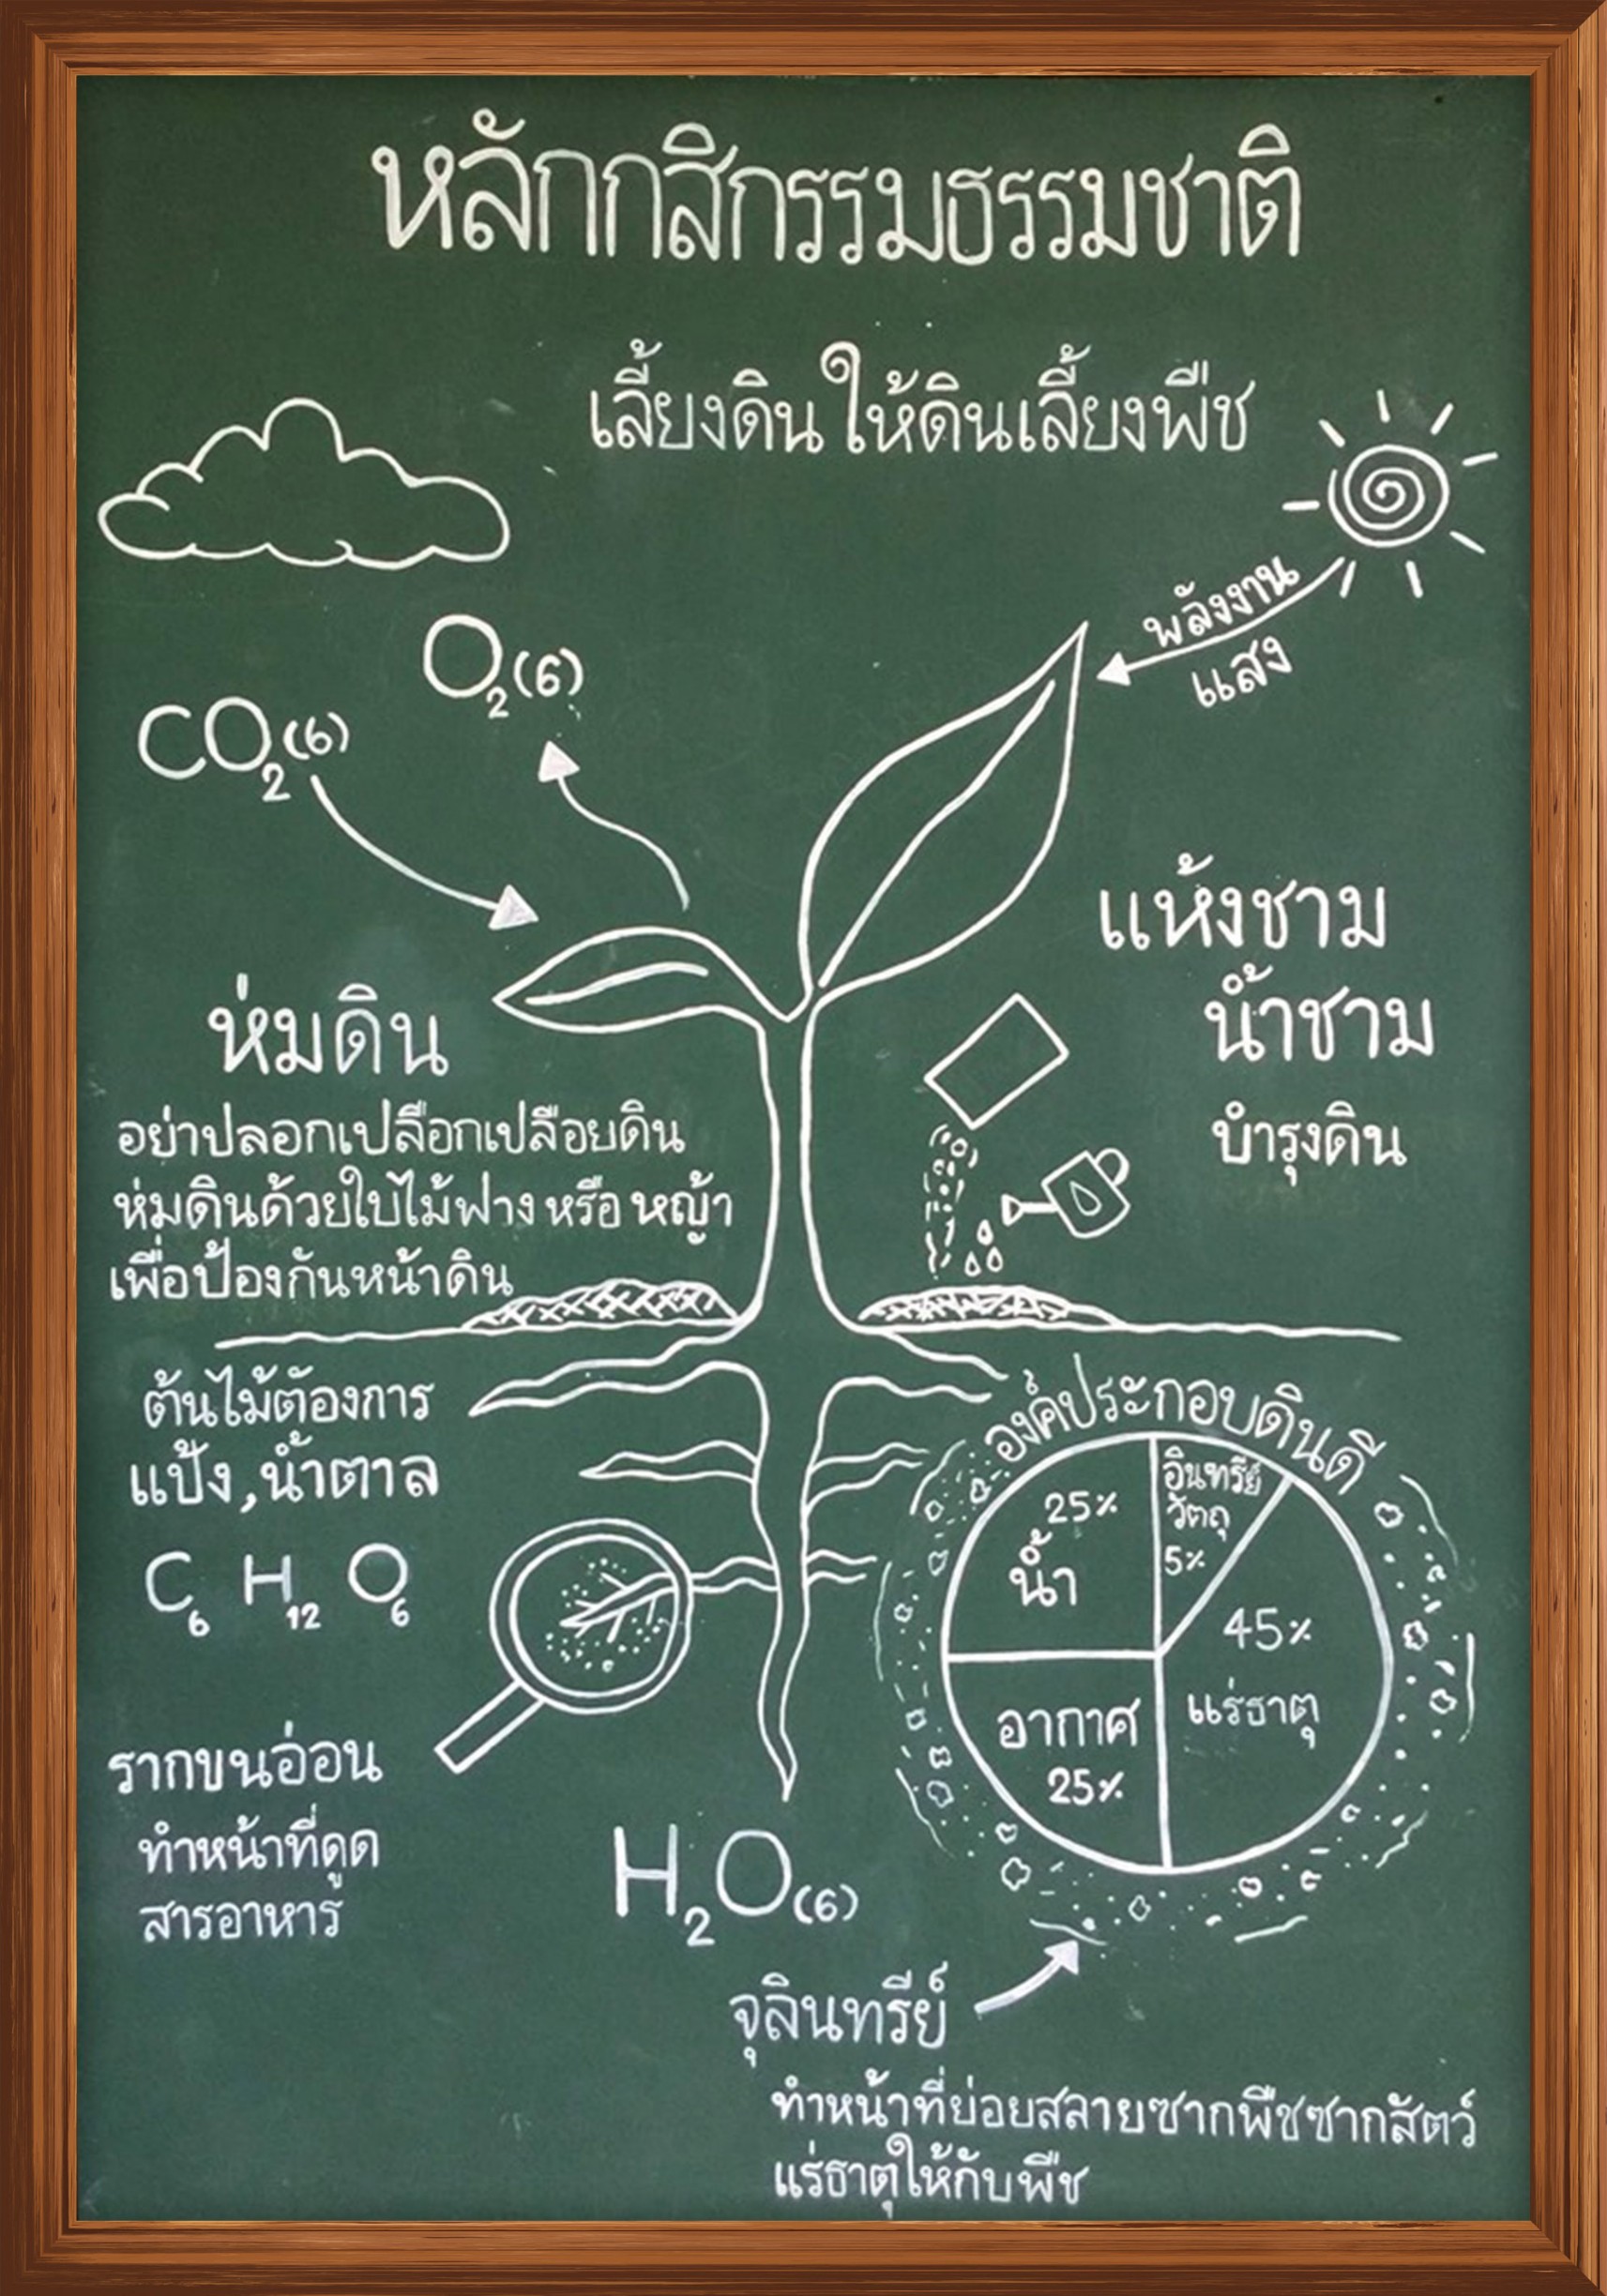 หลักกสิกรรมธรรมชาติ
เลี้ยงดิน ให้ดินเลี้ยงพืช
พลังงาน
แสง
O2(6)
CO2(6)
แห้งชาม
น้ำชาม
บำรุงดิน
ห่มดิน
อย่าปลอกเปลือกเปลือยดิน
ห่มดินด้วยใบไม้ฟาง หรือ หญ้า
เพื่อป้องกันหน้าดิน
ต้นไม้ต้องการ
แป้ง,น้ำตาล
C6 H12 O6
รากขนอ่อน
ทำหน้าที่ดูด
สารอาหาร
H2O(6)
องค์ประกอบดินดี
25%
น้ำ
อินทรีย์
วัตถุ
5%
45%
แร่ธาตุ
อากาศ
25%
จุลินทรีย์
ทำหน้าที่ย่อยสลายซากพืชซากสัตว์
แร่ธาตุให้กับพืช